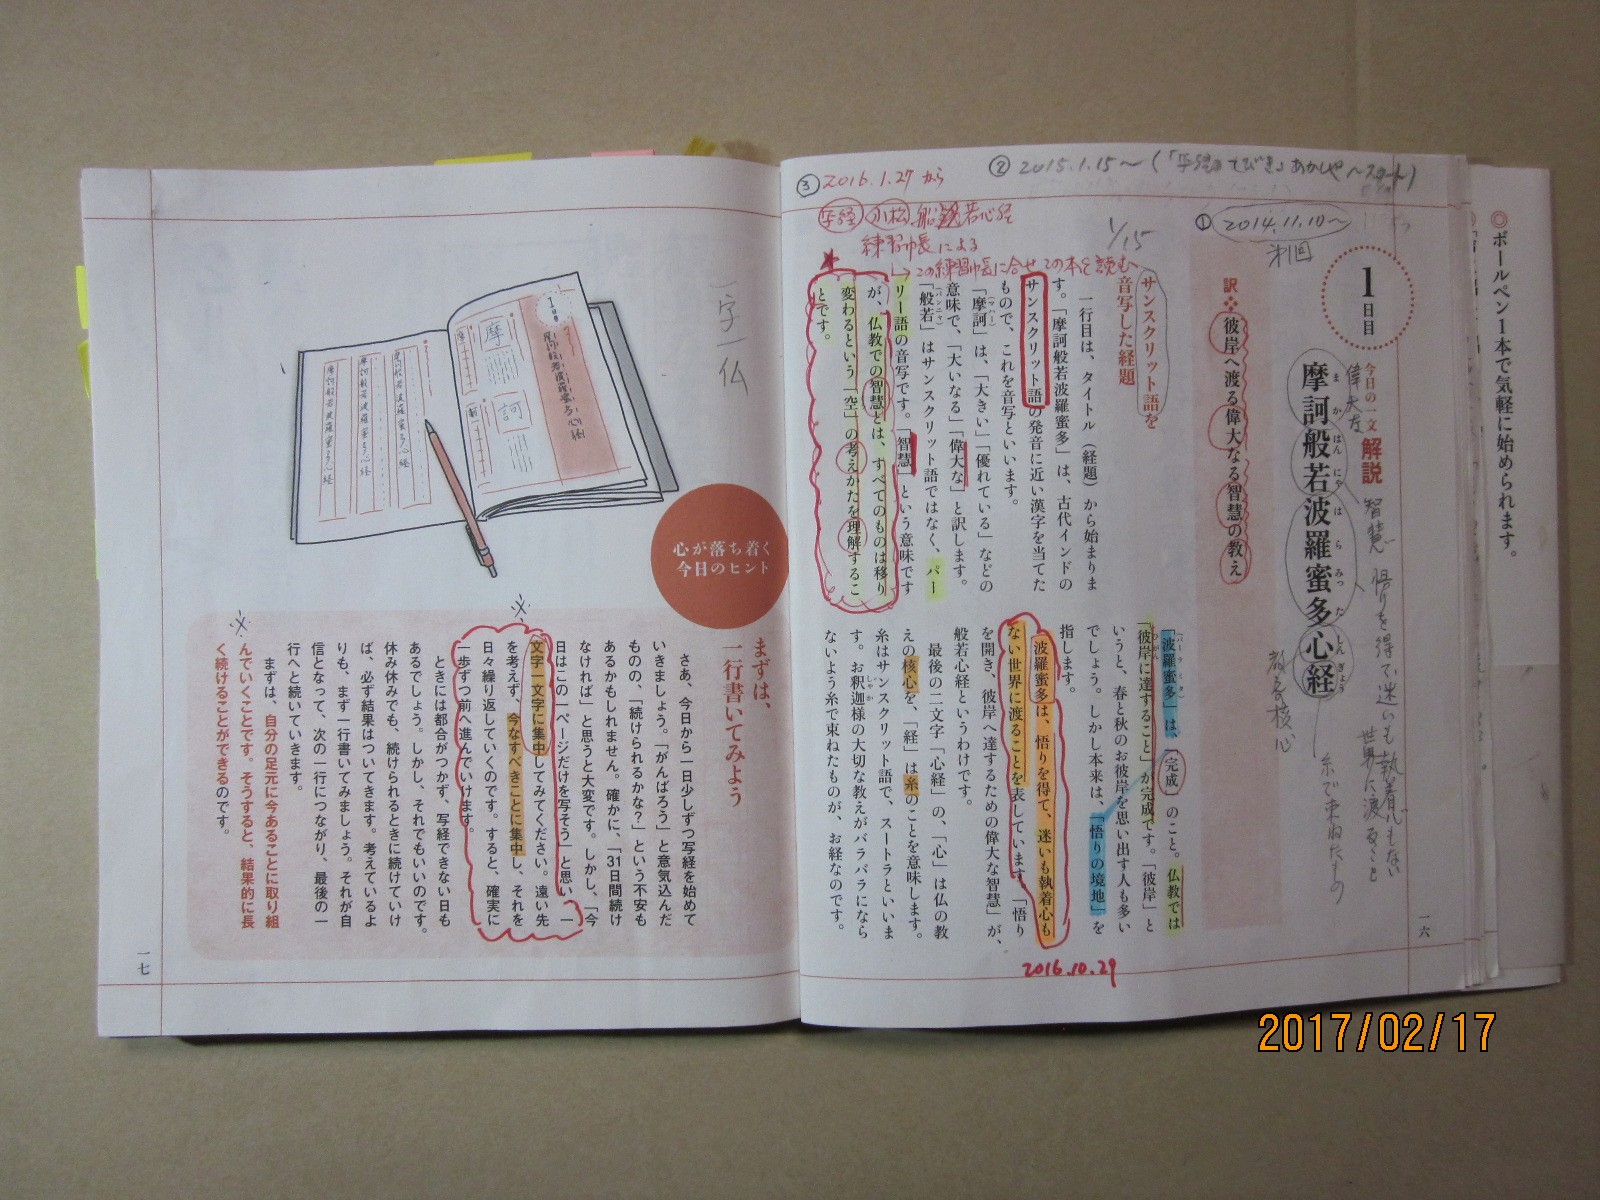 ◎ボールペン1本で気軽に始められます。
② 2015.1.15〜
③ 2016.1.27 から
① 2014.11.10〜
第1回
1/15
写経 小松 般若心経
練習帳による
→この練習帳に合せこの本を読む
1日目
今日の一文 解説
摩訶般若波羅蜜多心経
まかはんにゃはらみったしんぎょう
偉大な
智慧 悟りを得て迷いも執着心もない
世界に渡ること
教えの核心
糸で束ねたもの
訳❖彼岸へ渡る偉大なる智慧の教え
サンスクリット語を
音写した経題
一行目は、タイトル（経題）から始まりま
す。「摩訶般若波羅蜜多」は、古代インドの
サンスクリット語の発音に近い漢字を当てた
もので、これを音写といいます。
「摩訶」は、「大きい」「優れている」などの
意味で、「大いなる」「偉大な」と訳します。
「般若」はサンスクリット語ではなく、パー
リー語の音写です。「智慧」という意味です
が、仏教での智慧とは、すべてのものは移り
変わるという「空」の考えかたを理解するこ
とです。
「波羅蜜多」は、「完成」のこと。仏教では
「彼岸に達すること」が完成です。「彼岸」と
いうと、春と秋のお彼岸を思い出す人も多い
でしょう。しかし本来は、「悟りの境地」を
指します。
波羅蜜多は、悟りを得て、迷いも執着心も
ない世界に渡ることを表しています。「悟り
を開き、彼岸へ達するための偉大な智慧」が、
般若心経というわけです。
最後の二文字「心経」の、「心」は仏の教
えの核心を、「経」は糸のことを意味します。
糸はサンスクリット語で、スートラといいま
す。お釈迦様の大切な教えがバラバラになら
ないよう糸で束ねたものが、お経なのです。
2016.10.29
一六
一字一仏
1日目
摩訶般若波羅蜜多心経
摩
訶
摩訶般若波羅蜜多心経
摩訶般若波羅蜜多心経
摩訶般若波羅蜜多心経
心が落ち着く
今日のヒント
まずは、
一行書いてみよう
さあ、今日から一日少しずつ写経を始めて
いきましょう。「がんばろう」と意気込んだ
ものの、「続けられるかな？」という不安も
あるかもしれません。確かに、「31日間続け
なければ」と思うと大変です。しかし、「今
日はこの一ページだけを写そう」と思い、一
文字一文字に集中してみてください。遠い先
を考えず、今なすべきことに集中し、それを
日々繰り返していくのです。すると、確実に
一歩ずつ前へ進んでいけます。
ときには都合がつかず、写経できない日も
あるでしょう。しかし、それでもいいのです。
休み休みでも、続けられるときに続けていけ
ば、必ず結果はついてきます。考えているよ
りも、まず一行書いてみましょう。それが自
信となって、次の一行につながり、最後の一
行へと続いていきます。
まずは、自分の足元に今あることに取り組
んでいくことです。そうすると、結果的に長
く続けることができるのです。
一七
2017/02/17